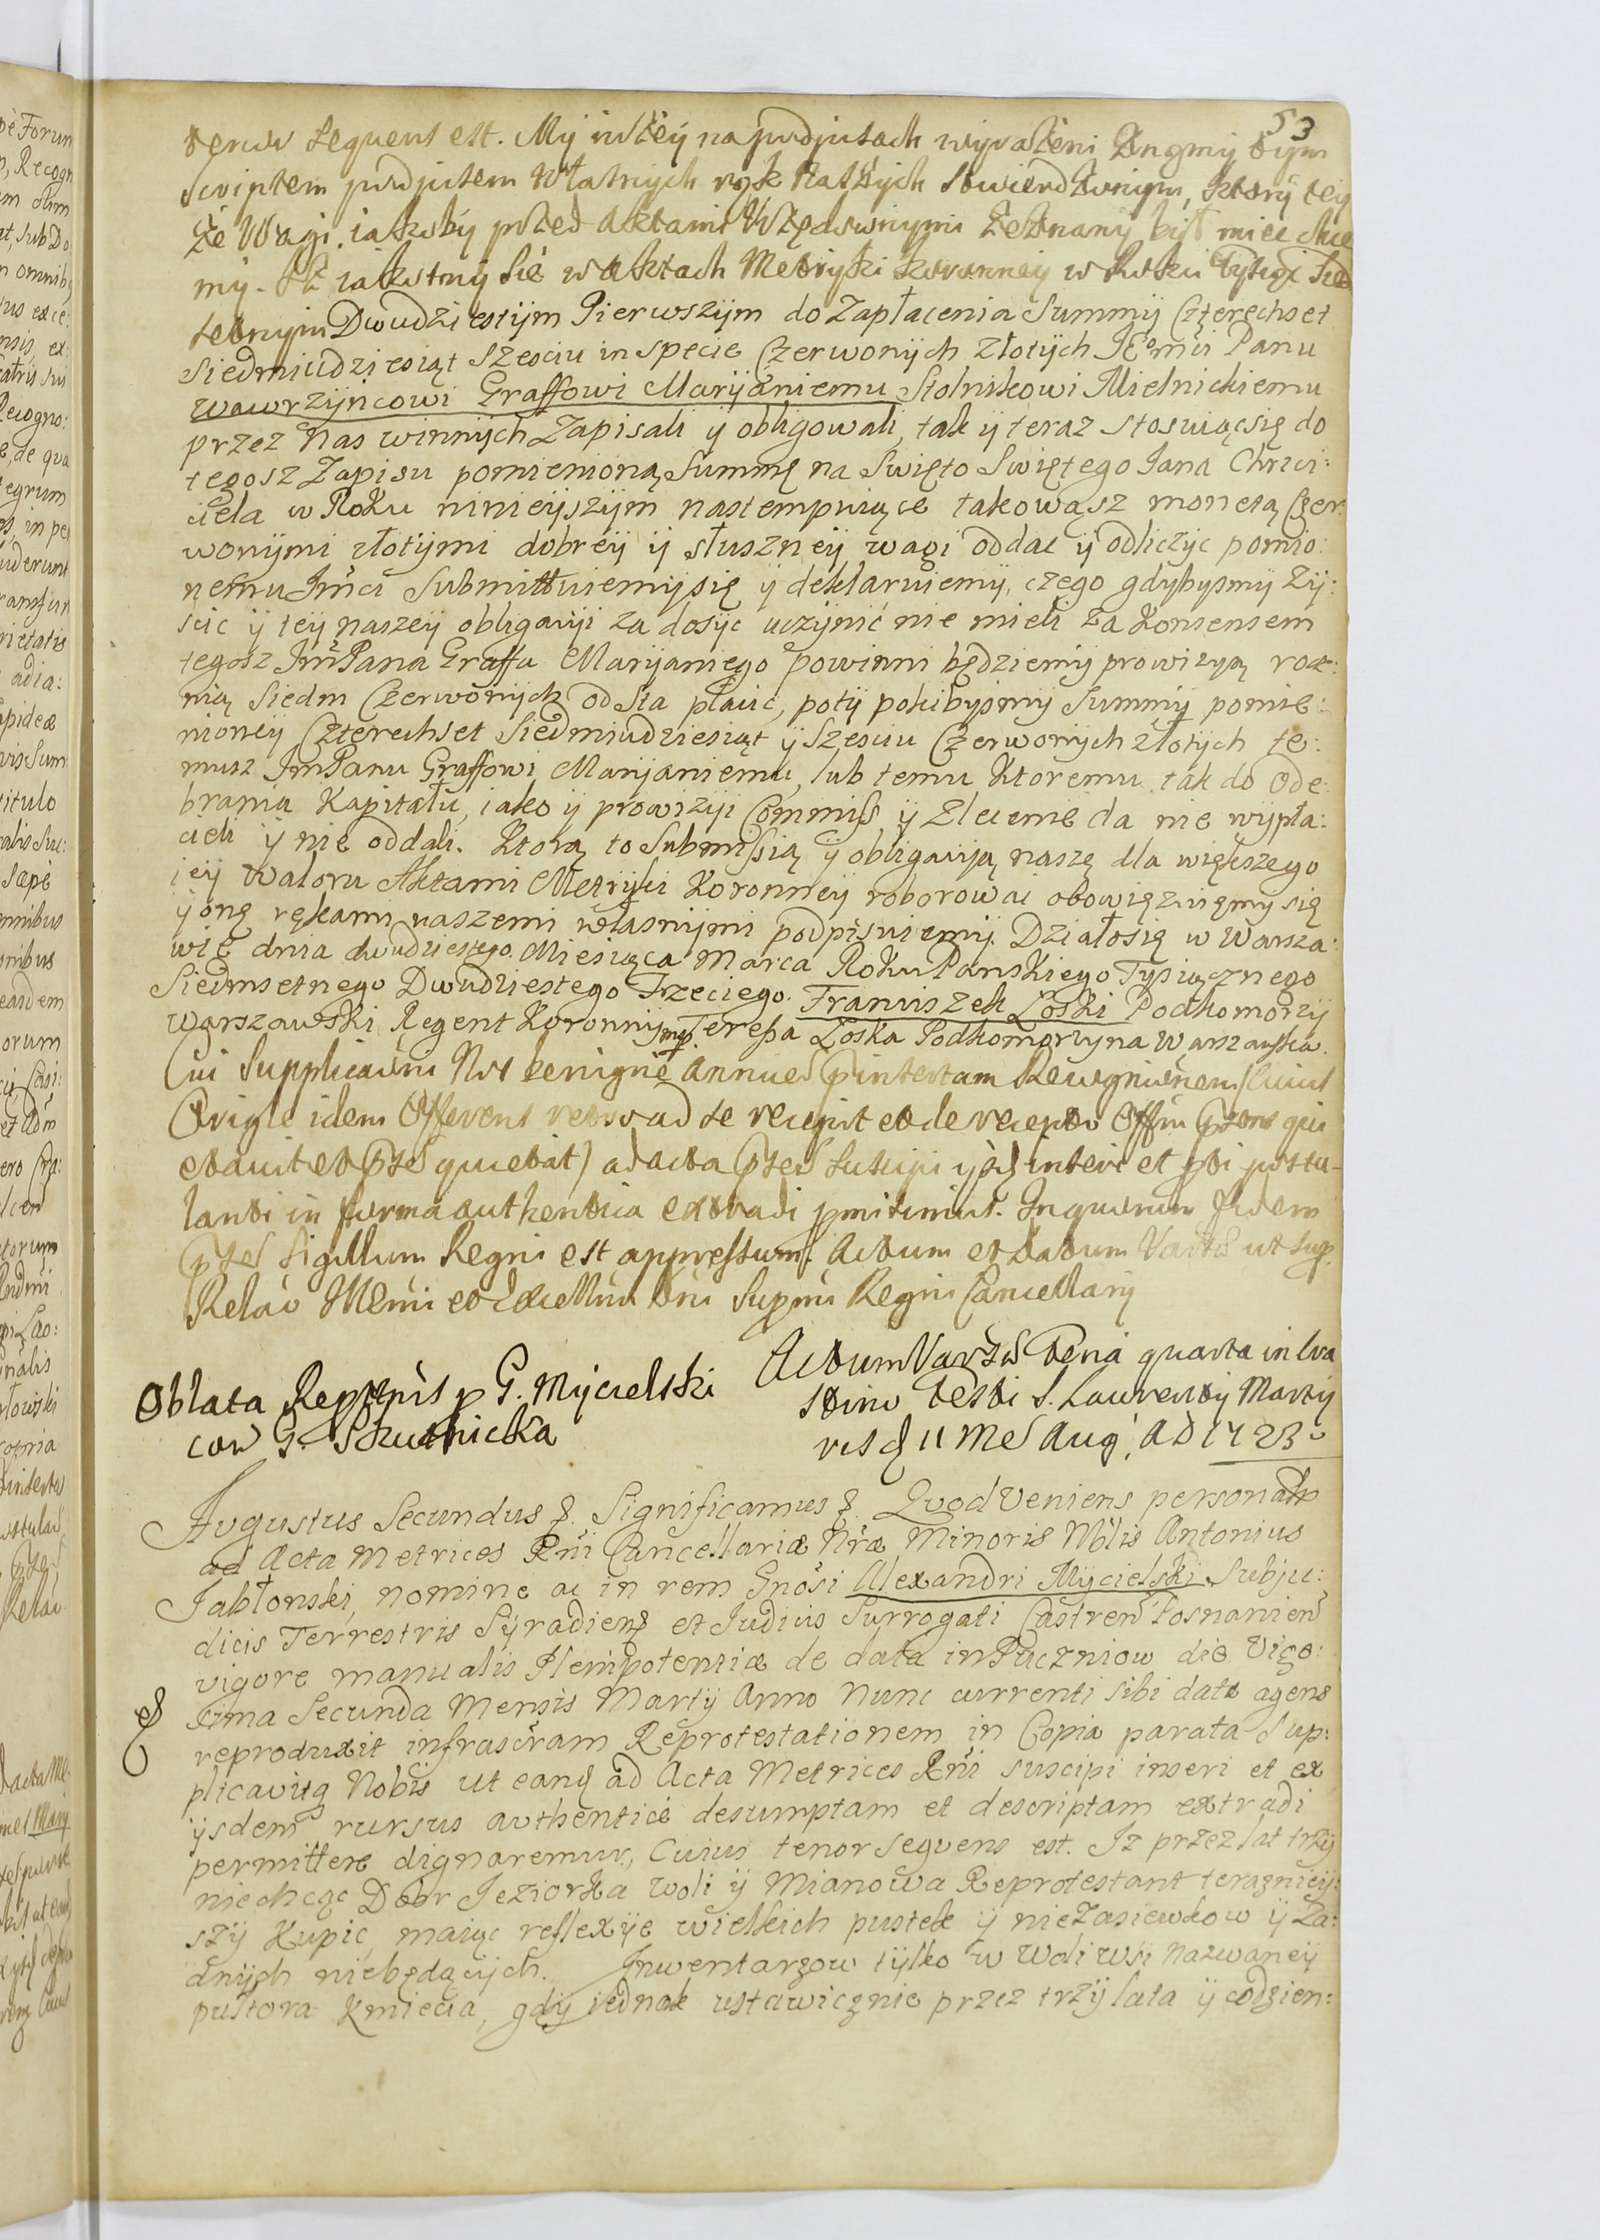 53
tenor sequens est. My niżey na podpisach wyrażeni Znamy tym
scriptem podpisem własnych rąk naszych stwierdzonym, ktory tey
że Wagi, iakoby przed Aktami Urzędownymi zeznany był miec chce
my. Iż iakosmy sie w aktach Metryki koronney w Roku Tysiąc Sied
setnym Dwudziestÿm Pierwszÿm do Zapłacenia Summÿ Czterechset
Siedmiudziesiąt szesciu in specie Czerwonÿch złotÿch JEomci Panu
Wawrzÿncowi Graffowi Marÿaniemu Stolnikowi Mielnickiemu
przez nas winnÿch Zapisali ÿ obligowali, tak ÿ teraz stosuiąc się do
tegosz Zapisu pomienioną Summę na Swięto Swiętego Jana Chrzci:
ciela w Roku ninieÿszÿm nastempuiące takowąsz monetą Czer:
wonÿmi złotÿmi dobreÿ ÿ słuszneÿ wagi oddac ÿ odliczÿc pomio:
nemu Jmci Submittuiemÿ się ÿ deklaruiemÿ, czego gdybysmÿ Zÿ:
scic ÿ teÿ naszeÿ obligacÿi za dosÿc uczÿnić nie mieli za Konsensem
tegosz JmPana Graffa Marÿaniego powinni będziemÿ prowizyą rocz:
nią siedm Czerwonÿch od Sta płacić, potÿ pokibysmÿ Summÿ pomie:
nioneÿ Czterechset Siedmiudziesiąt ÿ Szesciu Czerwonÿch złotÿch te:
musz JmPanu Graffowi Marÿaniemu, lub temu Ktoremu tak do Ode:
brania Kapitału, iako ÿ prowizÿi Commiss ÿ Zlecenie da nie wÿpła:
cieli ÿ nie oddali. Ktorą to Submissią ÿ obligacÿą naszę dla większego
ieÿ waloru Aktami Metrÿki Koronneÿ roborowac obowięzuięmy się
ÿ onę rękami naszemi własnÿmi podpisuiemÿ. Działo się w Warsza:
wie dnia dwudziestego Miesiąca Marca Roku Panskiego Tysiącznego
Siedmsetnego Dwudziestego Trzeciego. Franciszek Łoski Podkomorzÿ
Warszawski Regent Koronnÿ mp. Teressa Łoska Podkomorzyna Warszawska.
Cui Supplicaõni Nos benigne annuen̄ ptinsertam Recognitionem (Cuius
Origle idem Offerens retro ad se recepit et de recepto Offm ptens qui
etavit et ptes quietat) ad acta ptes suscipi ypsq̃ inseri et pti postu-
lanti in forma authentica extradi pmisimus. In quorum fidem
ptes sigillum Regni est appressum. Actum et Datum Vars̃ ut sup.
Relaõ Illmi et Excellmi Dni Supmi Regni Cancellarij
Oblata Reptnis p G. Mycielski
con G. Skudnicka
Actum Varss̃ Feria quarta in Cra
stino Festi S. Laurentij Marty
ris d 11 Mes̃ Aug. AD 1723.
Augustus Secundus &. Significamus &. Quod Veniens personalr
ad Acta Metrices Rñi Cancellariæ Nræ Minoris Nblis Antonius
Jabłonski, nomine ac in rem Gnosi Alexandri Mÿcielski Subju:
dicis Terrestris Sÿradien̄ et Judicis Surrogati Castren̄ Posnanien̄
vigore manualis Plenipotentiæ de data in Puczniow die Vige:
sima Secunda Mensis Martÿ Anno Nunc currenti sibi data agens
reproduxit infrascram Reprotestationem in Copia parata Sup:
plicavitq Nobis ut eandq ad Acta Metrices Rñi suscipi inseri et ex
ÿsdem rursus authentice desumptam et descriptam extradi
permittere dignaremur, Cuius tenor sequens est. Iz przez lat trzÿ
niechcąc Dobr Jeziorka Woli ÿ Mianowa Reprotestant terazniey:
szÿ Kupic, maiąc reflexÿę wielkich pustek ÿ nieZasiewkow ÿ Ża:
dnÿch niebędącÿch. Inwentarzow tÿlko w Woli wsi nazwaneÿ
pułtora Kmiecia, gdÿ iednak ustawicznie przez trzÿ lata ÿ codzien: